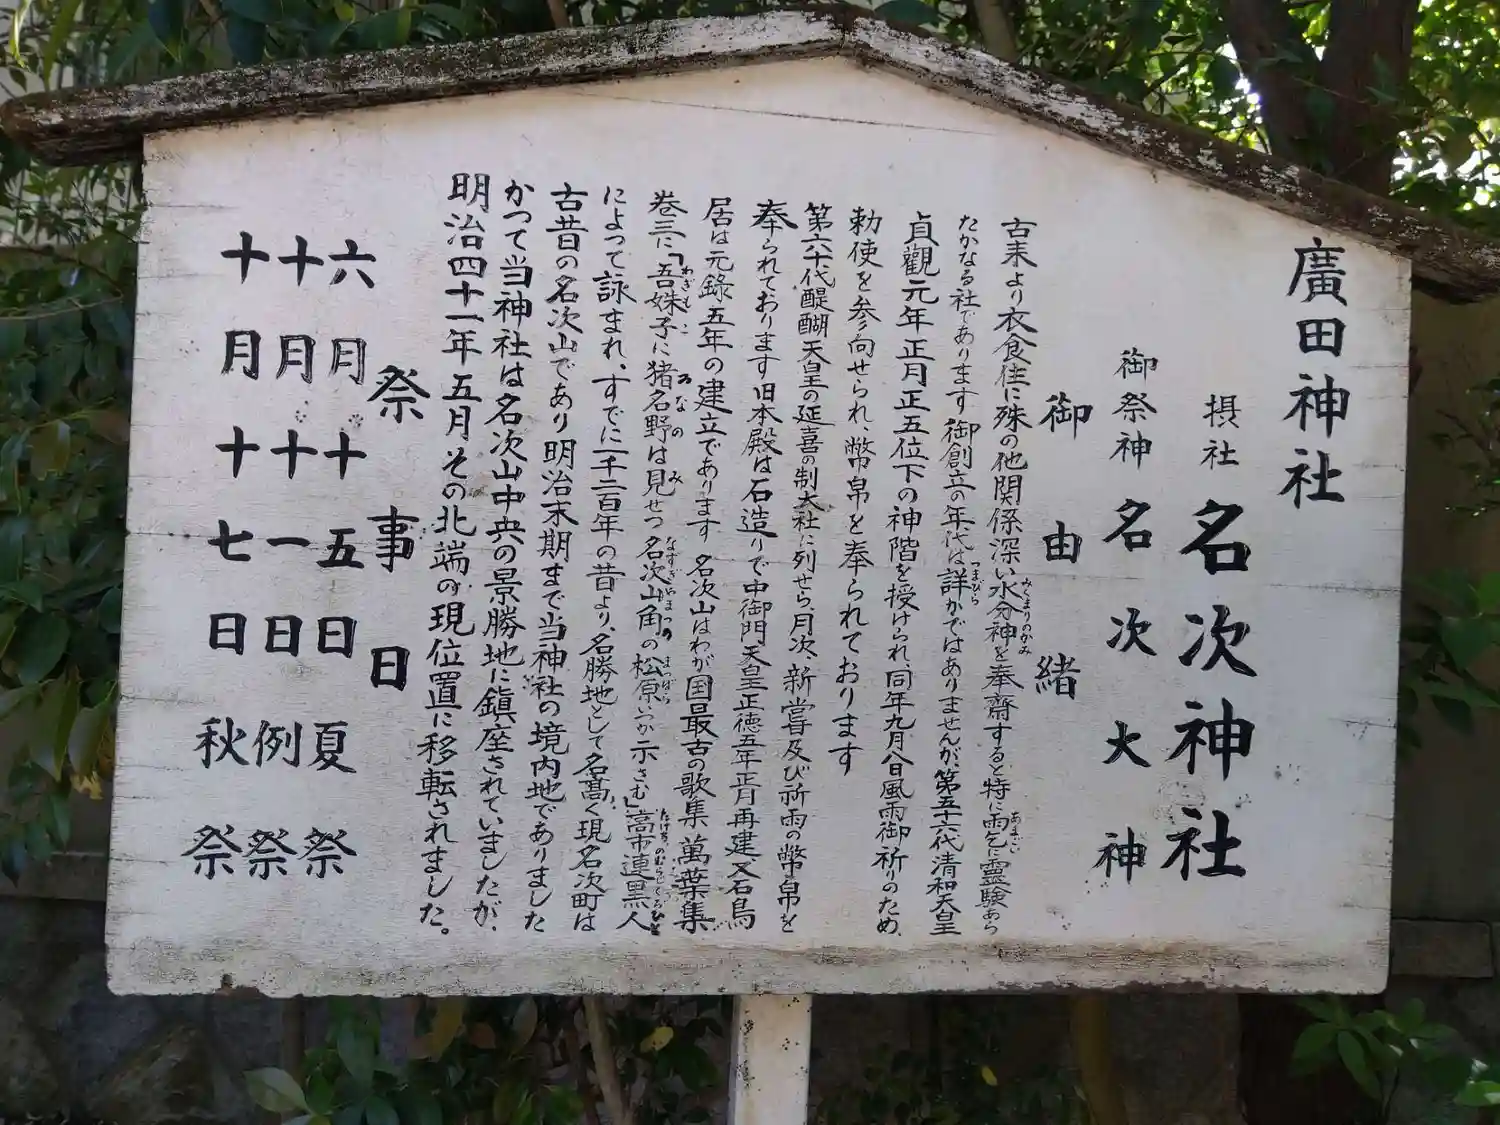 廣田神社
摂社 名次神社
御祭神 名次大神
御由緒
古来より衣食住に殊の他関係深い水分神を奉齋すると特に雨乞に霊験あら
たかなる社であります 御創立の年代は詳かではありませんが、第五十六代清和天皇
貞觀元年正月正五位下の神階を授けられ、同年九月八日風雨御祈りのため、
勅使を参向せられ、幣帛を奉られております
第六十代醍醐天皇の延喜の制大社に列せら、月次、新嘗及び祈雨の幣帛を
奉られております 旧本殿は石造りで中御門天皇正徳五年正月再建 又石鳥
居は元錄五年の建立であります 名次山はわが国最古の歌集 萬葉集
巻三に「吾妹子に猪名野は見せつ名次山角の松原いつか示さむ」高市連黒人
によって詠まれ、すでに一千二百年の昔より、名勝地として名高く現名次町は
古昔の名次山であり 明治末期まで当神社の境内地でありました
かつて当神社は名次山中央の景勝地に鎭座されていましたが、
明治四十一年五月その北端の現位置に移転されました。
祭事日
六月十五日 夏祭
十月十一日 例祭
十月十七日 秋祭